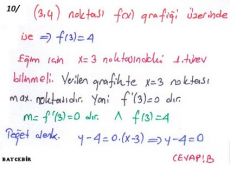 10/ (3,4) noktası f(x) grafiği üzerinde
ise ⇒ f(3)=4
Eğim için x=3 noktasındaki 1. türev
bilinmeli. Verilen grafikte x=3 noktası
max. noktasıdır. Yani f'(3)=0 dır.
m= f'(3)=0 dır. ∧ f(3)=4
Teğet denk. y-4=0.(x-3) ⇒ y-4=0
BAYCEBİR
CEVAP:B